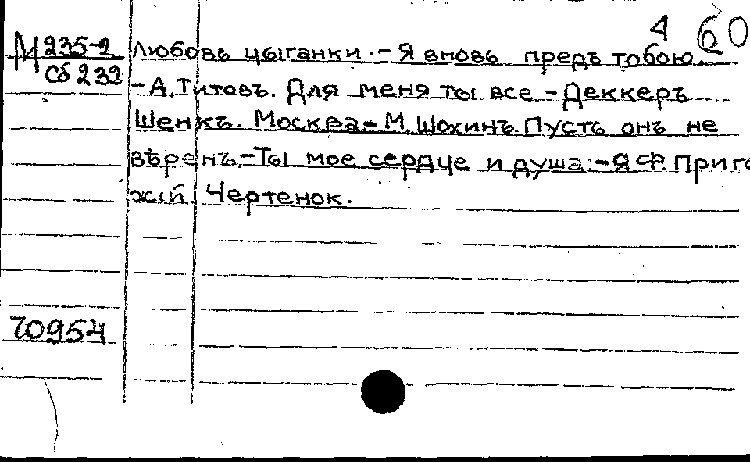 4 60
М 235-2 Любовь цыганки.-Я вновь предъ тобою
Сб 232
-А.Титовъ. Для меня ты все-Деккеръ
Шенкъ. Москва-М.Шохинъ. Пусть онъ не
вѣренъ-Ты мое сердце и душа.-Я.Ф. Приго
жій. Чертенок.
70954